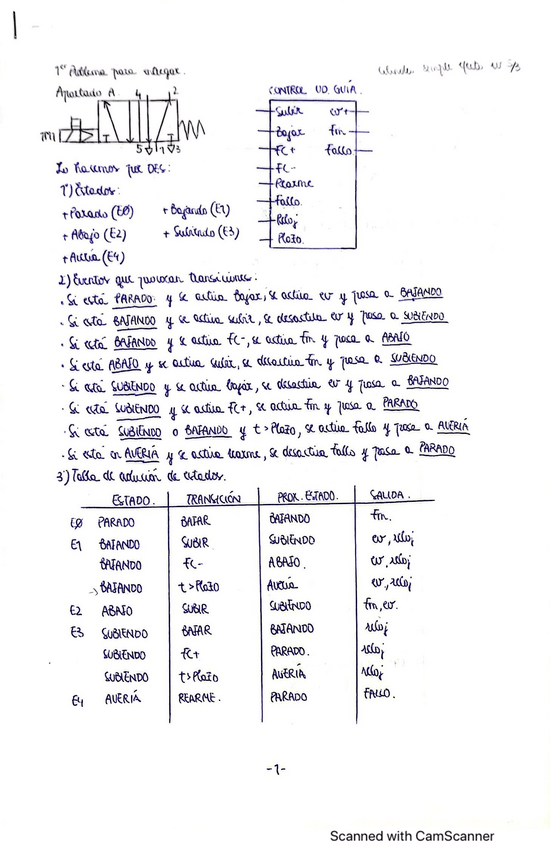 1er Problema para entregar.
Cilindro simple efecto ev 5/3
Apartado A
4
2
5 1 3
CONTROL UD. GUÍA.
Subir ev+
Bajar fin
FC+ Fallo
FC-
Rearme
Fallo
Reloj
Plazo.
Lo hacemos por DES:
1º) Estados:
+ Parado (E0) + Bajando (E1)
+ Abajo (E2) + Subiendo (E3)
+ Avería (E4)
2) Eventos que provocan transiciones:
· Si está PARADO y se activa bajar, se activa ev y pasa a BAJANDO
· Si está BAJANDO y se activa subir, se desactiva ev y pasa a SUBIENDO
· Si está BAJANDO y se activa fc-, se activa fin y pasa a ABAJO
· Si está ABAJO y se activa subir, se desactiva fin y pasa a SUBIENDO
· Si está SUBIENDO y se activa bajar, se desactiva ev y pasa a BAJANDO
· Si está SUBIENDO y se activa fc+, se activa fin y pasa a PARADO
· Si está SUBIENDO o BAJANDO y t>Plazo, se activa fallo y pasa a AVERÍA
· Si está en AVERÍA y se activa rearme, se desactiva fallo y pasa a PARADO
3º) Tabla de evolución de estados.
ESTADO. TRANSICIÓN PROX. ESTADO. SALIDA.
E0 PARADO BAJAR BAJANDO fin.
E1 BAJANDO SUBIR SUBIENDO ev, reloj
BAJANDO fc- ABAJO. ev, reloj
BAJANDO t>Plazo Avería ev, reloj
E2 ABAJO SUBIR SUBIENDO fin, ev.
E3 SUBIENDO BAJAR BAJANDO reloj
SUBIENDO fc+ PARADO. reloj
SUBIENDO t>Plazo AVERÍA reloj
E4 AVERÍA REARME. PARADO FALLO.
-1-
Scanned with CamScanner